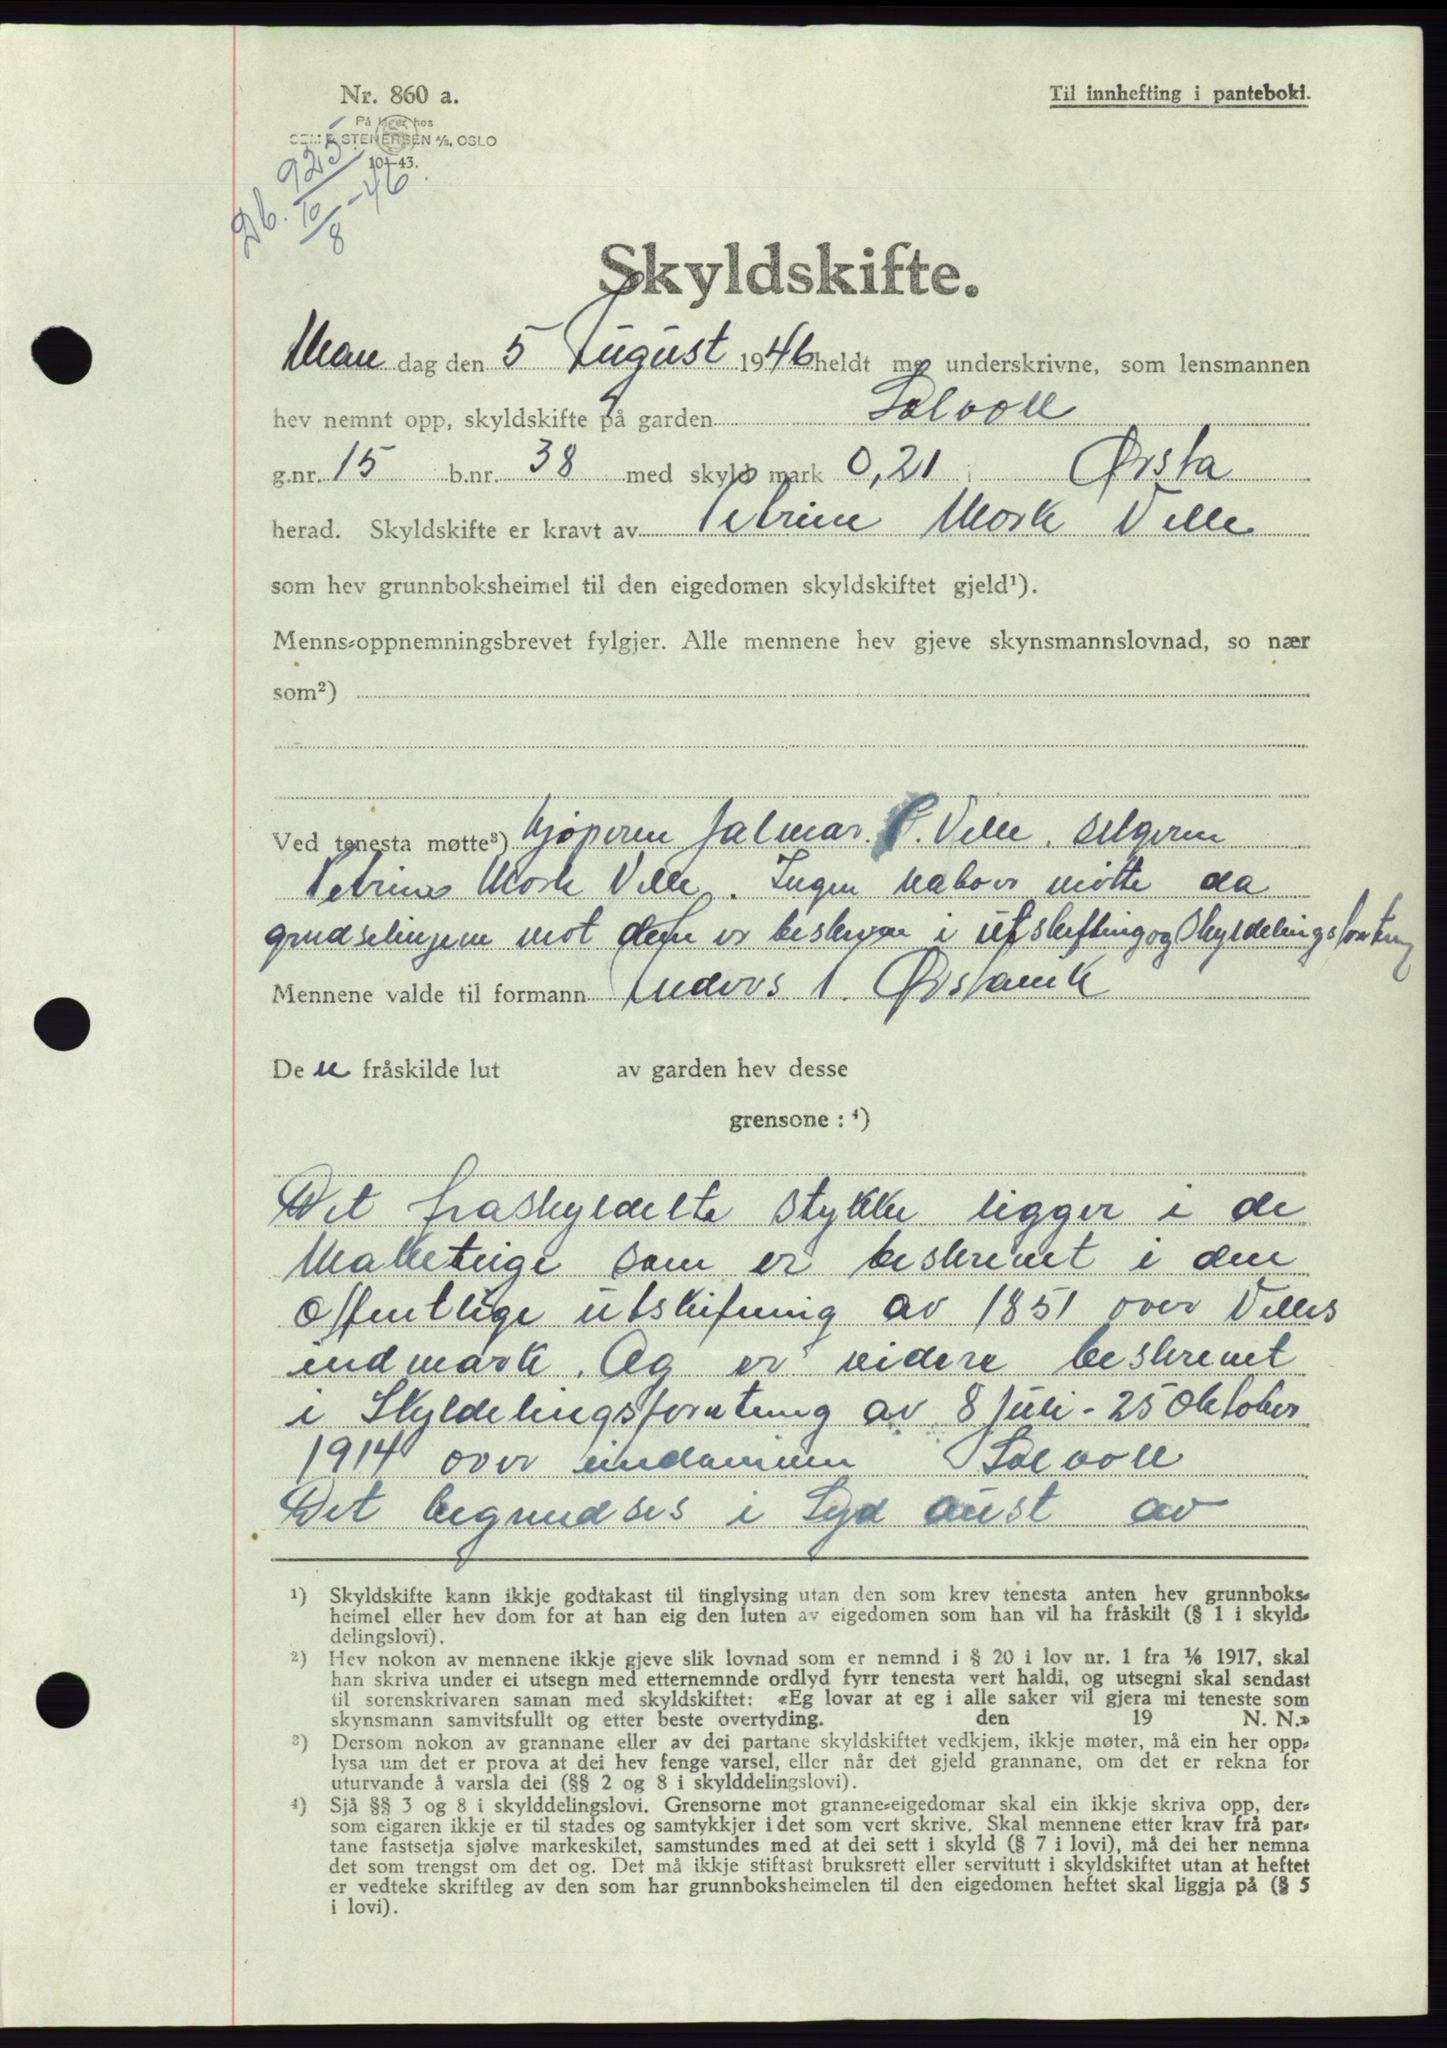 Nr. 860 a.
Til innhefting i panteboki.
På lager hos
STENERSEN A/S, OSLO
10-43.
Db. 925
10/8-46.
Skyldskifte.
Man dag den 5 August 1946 heldt me underskrivne, som lensmannen
hev nemnt opp, skyldskifte på garden Solvoll
g.nr. 15 b.nr. 38 med skyld mark 0,21 i Ørsta
herad. Skyldskifte er kravt av Petrine Mork Velle
som hev grunnboksheimel til den eigedomen skyldskiftet gjeld¹).
Menns-oppnemningsbrevet fylgjer. Alle mennene hev gjeve skynsmannslovnad, so nær
som²)
Ved tenesta møtte³) Kjøperen Jalmar P. Velle, selgeren
Petrines Mork Velle. Ingen naboer møtte da
grndselinjene mot dem er beskrevn i utskifting og Skyldelingsforetning
Mennene valde til formann Anders A. Ørstavik
De n fråskilde lut av garden hev desse
grensone : ⁴)
Det fraskyldelte stykke ligger i de
teige som er beskrevet i den
offentlige utskifning av 1851 over Velles
indmark. Og er videre beskrevet
i Skyldelingsforetning av 8 Juli - 25 Oktober
1914 over eiendommen Solvoll
Det begrendses i Syd aust av
¹) Skyldskifte kann ikkje godtakast til tinglysing utan den som krev tenesta anten hev grunnboks-
heimel eller hev dom for at han eig den luten av eigedomen som han vil ha fråskilt (§ 1 i skyld-
delingslovi).
²) Hev nokon av mennene ikkje gjeve slik lovnad som er nemnd i § 20 i lov nr. 1 fra 1/6 1917, skal
han skriva under ei utsegn med etternemnde ordlyd fyrr tenesta vert haldi, og utsegni skal sendast
til sorenskrivaren saman med skyldskiftet: «Eg lovar at eg i alle saker vil gjera mi teneste som
skynsmann samvitsfullt og etter beste overtyding. den 19 N. N.»
³) Dersom nokon av grannane eller av dei partane skyldskiftet vedkjem, ikkje møter, må ein her opp-
lysa um det er prova at dei hev fenge varsel, eller når det gjeld grannane, om det er rekna for
uturvande å varsla dei (§§ 2 og 8 i skylddelingslovi).
⁴) Sjå §§ 3 og 8 i skylddelingslovi. Grensorne mot granne-eigedomar skal ein ikkje skriva opp, der-
som eigaren ikkje er til stades og samtykkjer i det som vert skrive. Skal mennene etter krav frå par-
tane fastsetja sjølve markeskilet, samstundes med at dei sett i skyld (§ 7 i lovi), må dei her nemna
det som trengst om det og. Det må ikkje stiftast bruksrett eller servitutt i skyldskiftet utan at heftet
er vedteke skriftleg av den som har grunnboksheimelen til den eigedomen heftet skal liggja på (§ 5
i lovi).